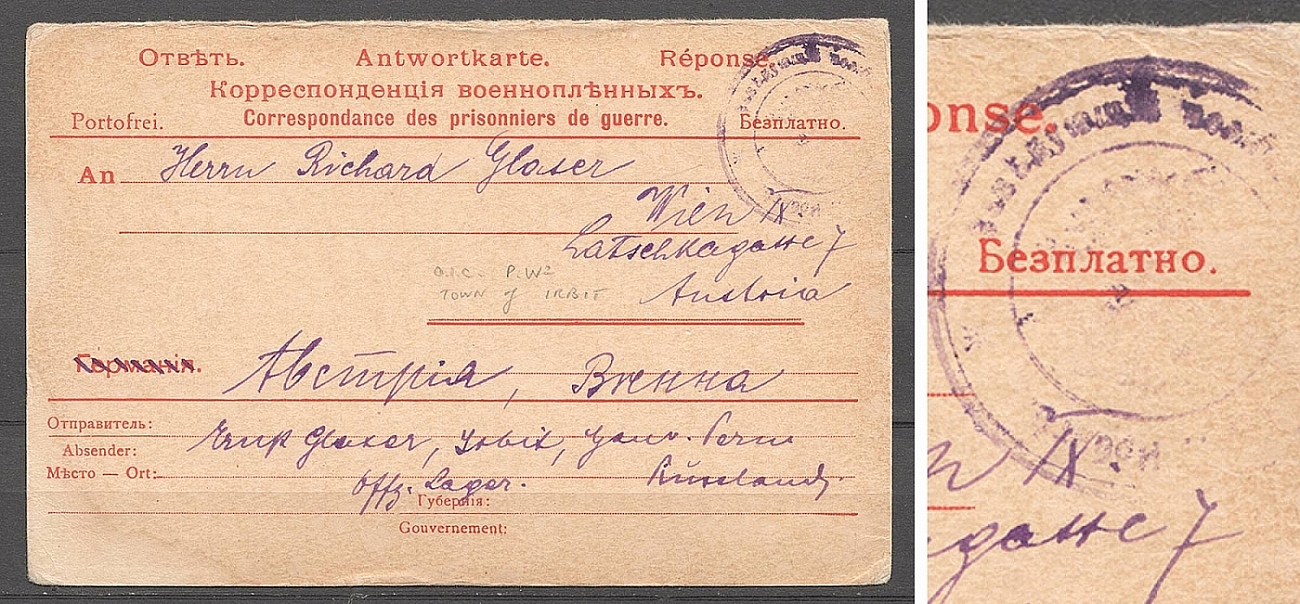 Отвѣтъ. Antwortkarte. Réponse.
Корреспонденція военноплѣнныхъ.
Portofrei. Correspondance des prisonniers de guerre. Безплатно.
An Herrn Richard Glaser
Wien IX.
Latschkagasse 7
P.W.
TOWN of IRBIT Austria
Германія. Австрія, Вѣнна
Отправитель:
Absender: Glaser, Irbit, Gouv. Perm
Мѣсто — Ort: Offz. Lager. Russland.
Губернія:
Gouvernement:
onse.
Безплатно.
IX.
gasse 7